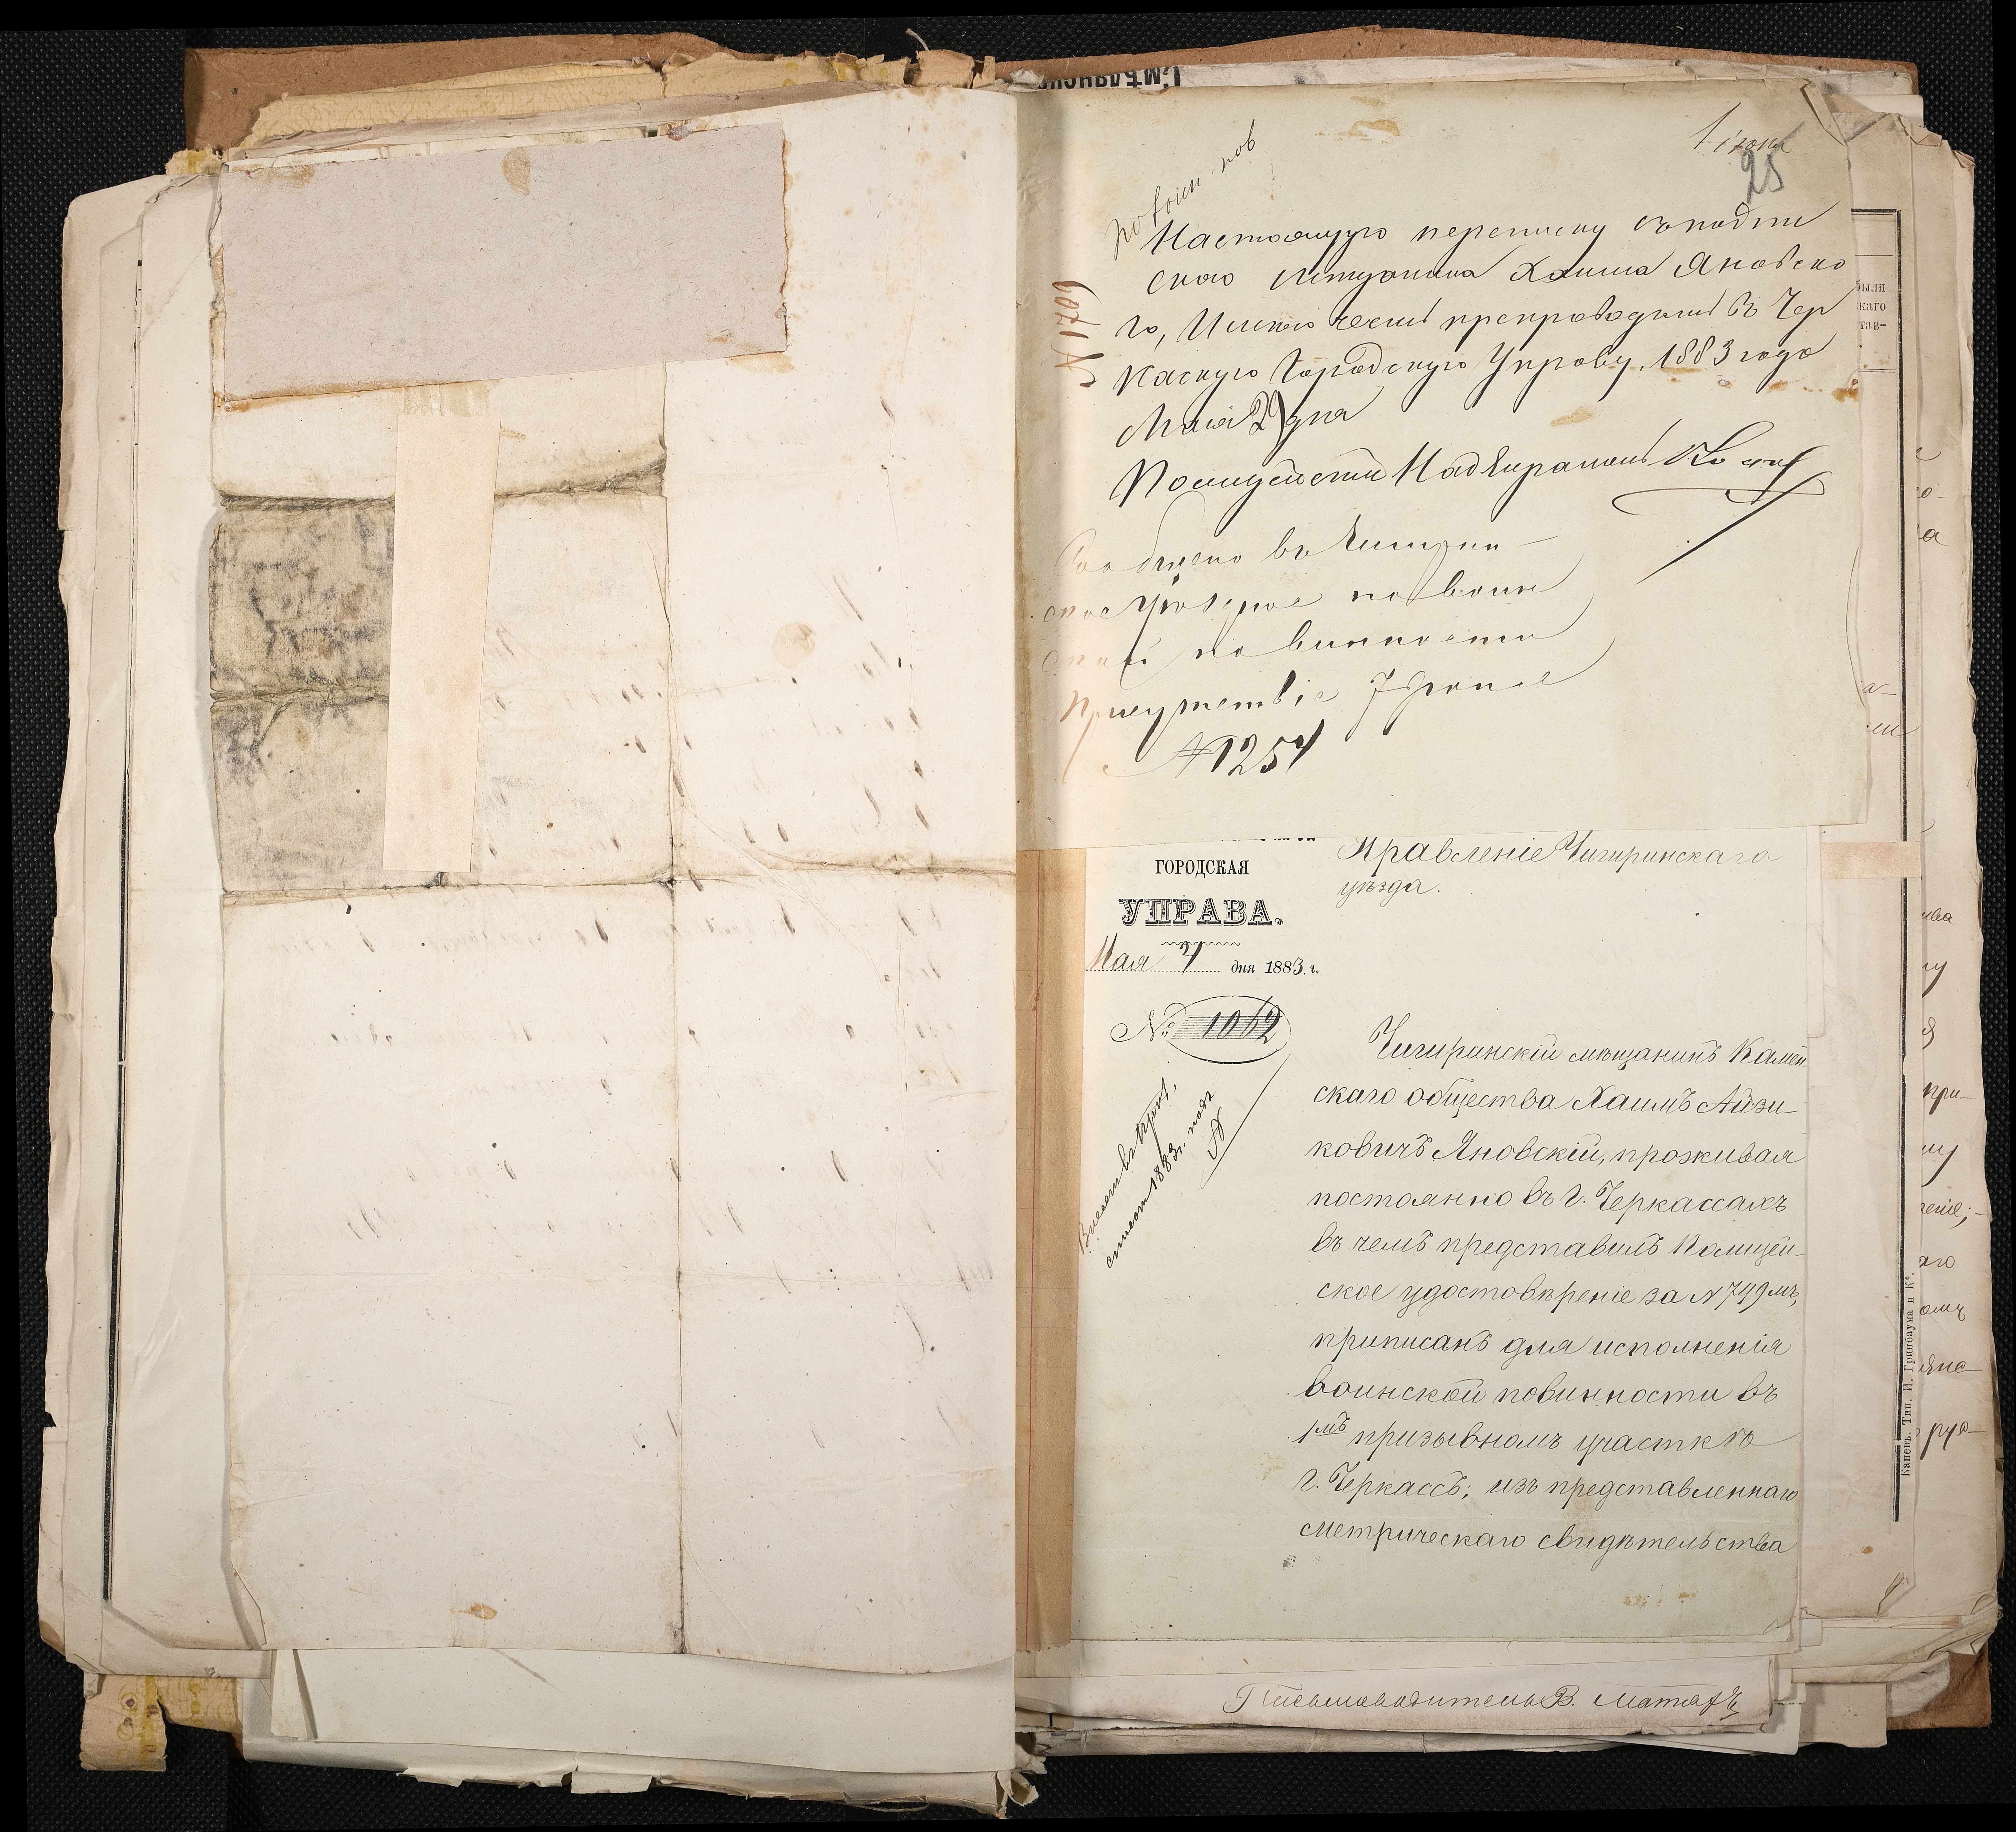 1 июня
25
по воин пов
Настоящую переписку съ подпи
скою мещанина Хаима Яновско
го, Имею честь препроводить въ Чер
касскую Городскую Управу. 1883 года
Мая 29 дня
№ 1709
Полицейскій Надзиратель
Сообщено въ Чигирин-
ское Уездное по воин
ской повинности
Присутствіе 7 Іюня
№ 1254
ГОРОДСКАЯ
УПРАВА.
Мая 4 дня 1883 г.
№ 1062
Правленіе Чигиринскаго
уѣзда.
Внесенъ въ приз.
списокъ 1883 г. подъ
№
Чигиринскій мѣщанинъ Камен
скаго общества Хаимъ Айзи-
ковичъ Яновскій, проживая
постоянно въ г. Черкассахъ
въ чемъ представилъ Полицей-
ское удостовѣреніе за № 749мъ,
приписанъ для исполненія
воинской повинности въ
1мъ призывномъ участкѣ
г. Черкассъ; изъ представленнаго
метрическаго свидѣтельства
Письмоводитель В.
были
каго
тав-
Каневъ. Тип. И. Гринбаума и Кº.